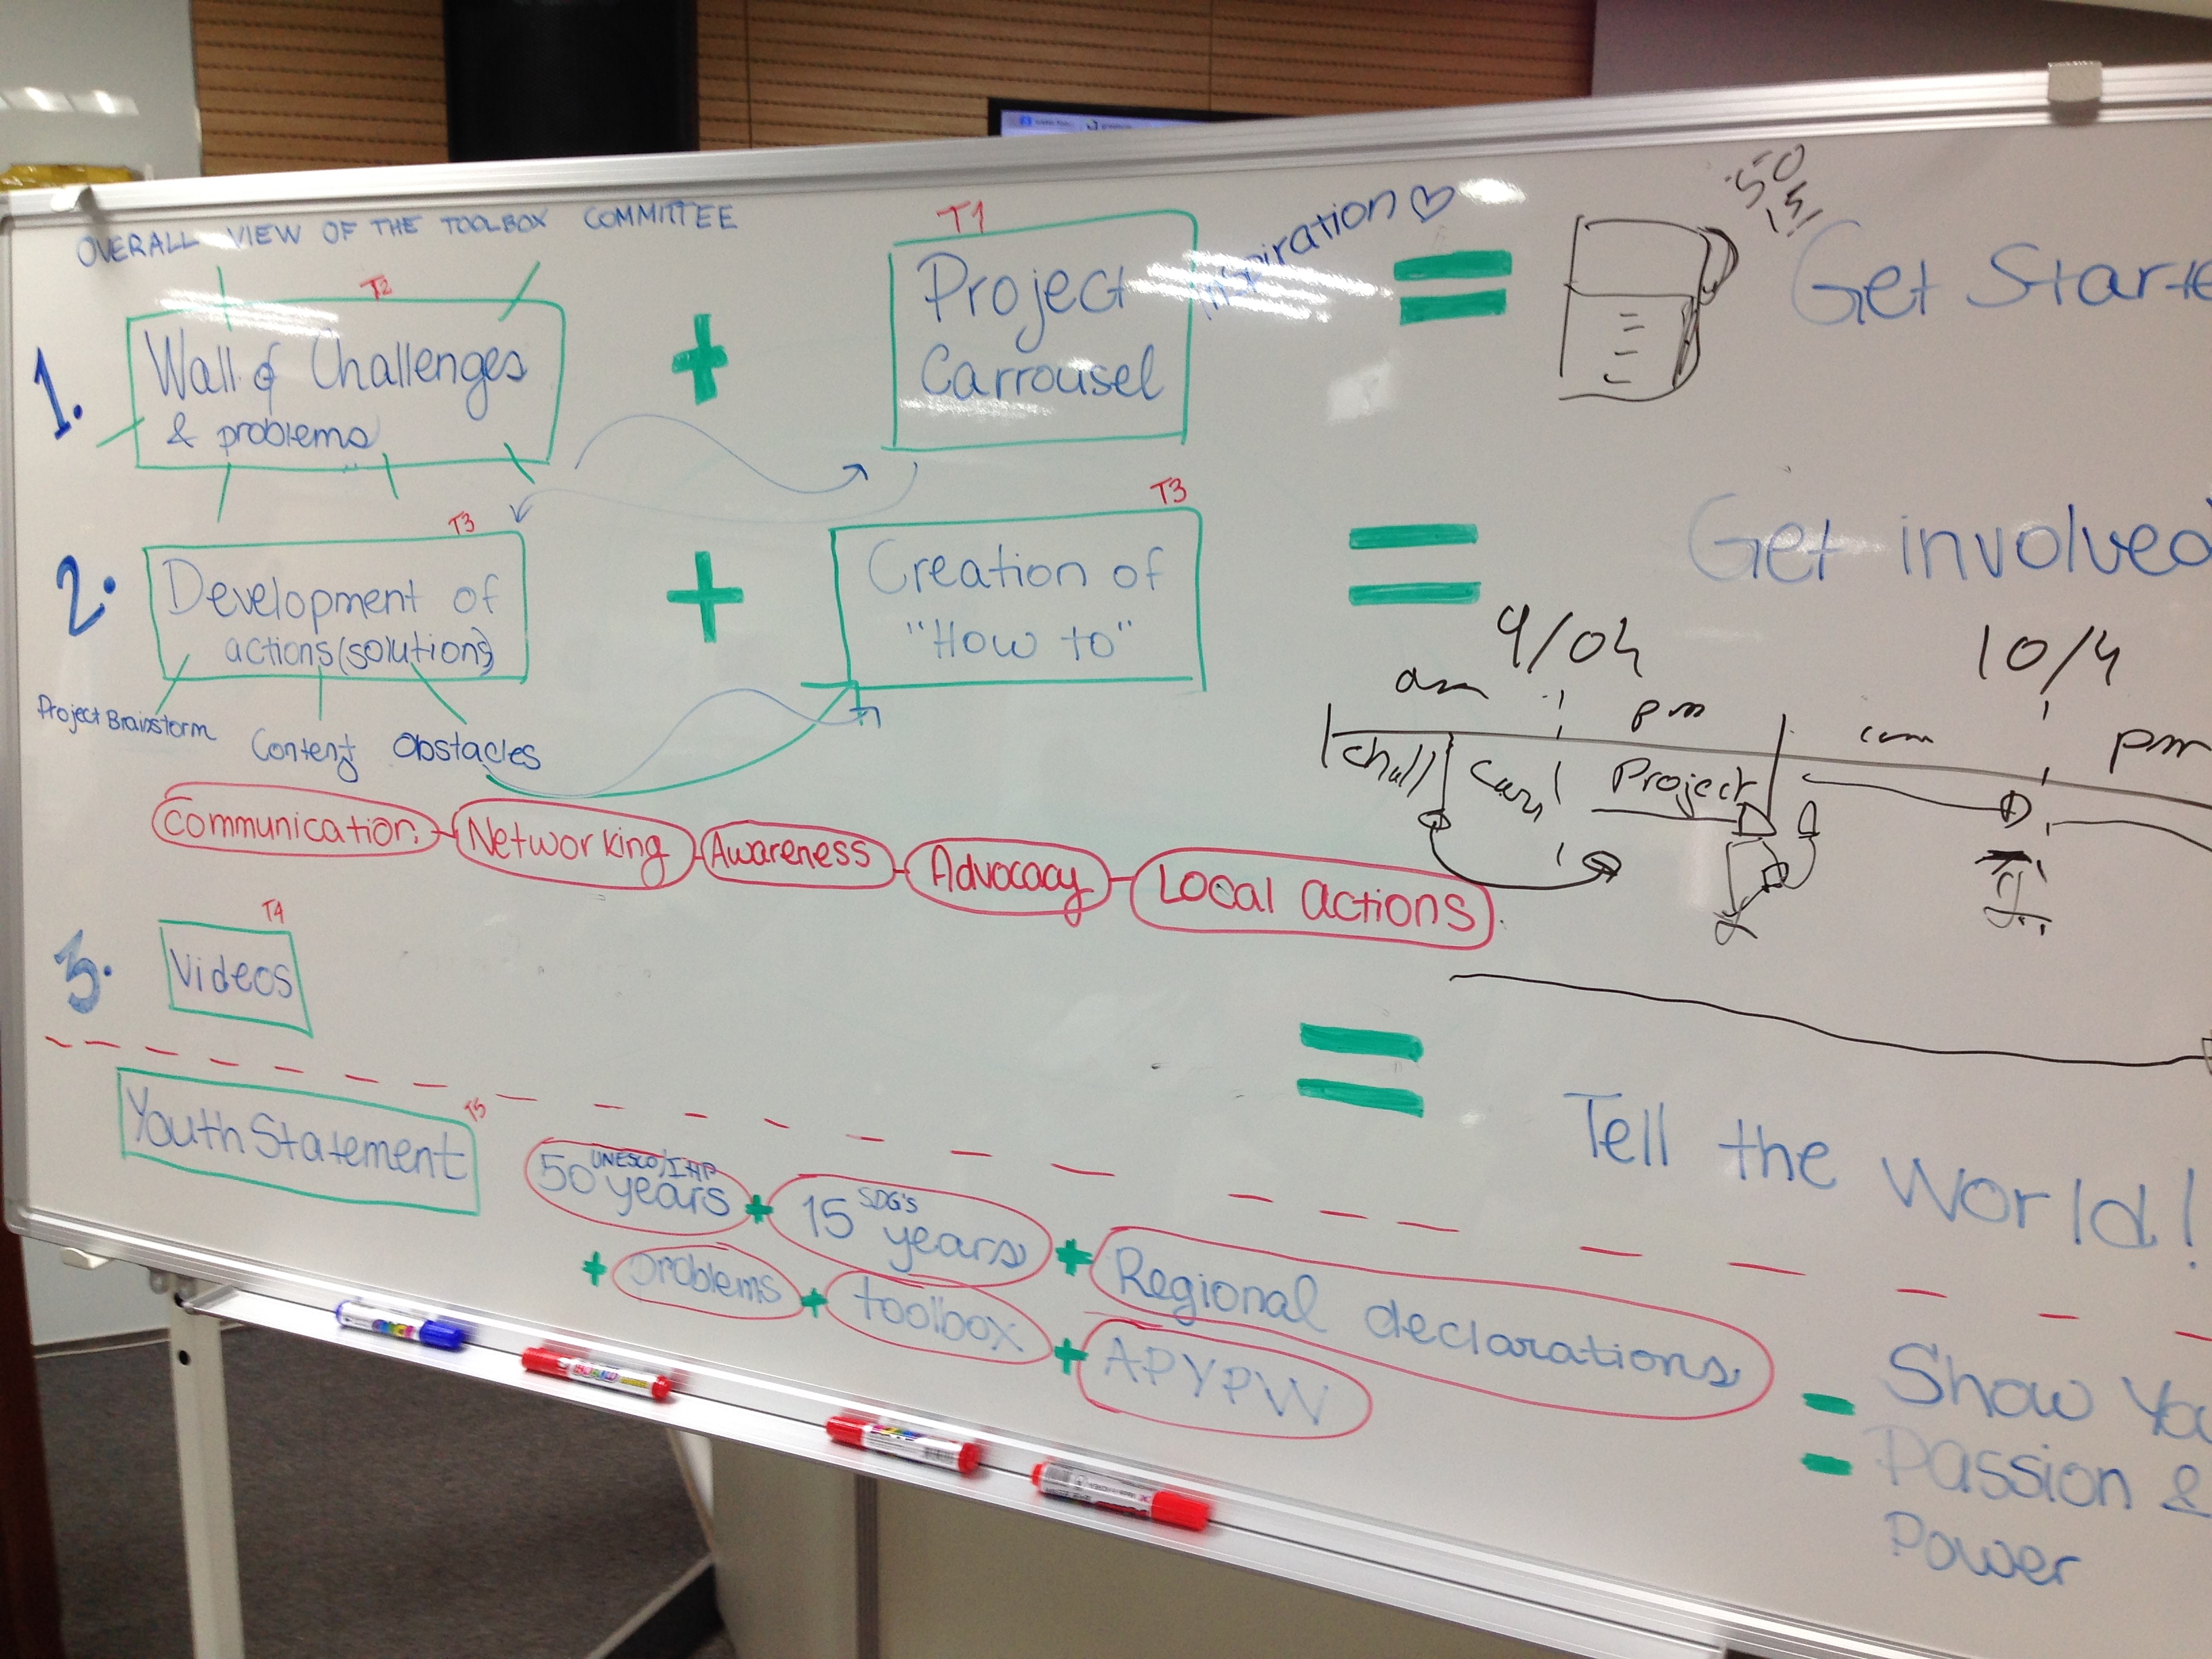 OVERALL VIEW OF THE TOOLBOX COMMITTEE
1.
T2
Wall of Challenges
& problems
+
T1
Project
Carrousel
Inspiration ♡
=
50
15
Get Starte
2.
T3
Development of
actions (solutions)
Project Brainstorm
Content
Obstacles
+
T3
Creation of
"How to"
=
Get involved
9/04
10/4
am
pm
am
pm
Chall
Carr
Project
Communication
Networking
Awareness
Advocacy
Local actions
3.
T4
Videos
=
Tell the World!
T5
Youth Statement
50 years
UNESCO/IHP
+
15 years
SDG's
+
Regional declarations
+
problems
+
toolbox
+
APYPW
=
Show You
Passion &
Power